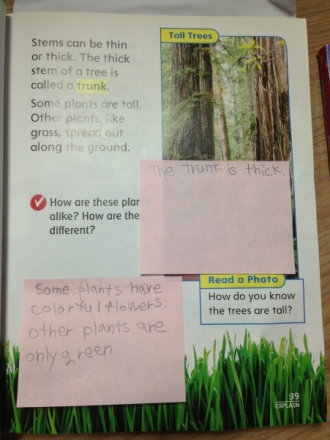 Stems can be thin
or thick. The thick
stem of a tree is
called a trunk.
Some plants are tall.
Other plants, like
grass, spread out
along the ground.
How are these plan
alike? How are the
different?
Tall Trees
The trunk is thick.
Read a Photo
How do you know
the trees are tall?
Some plants have
colorful flowers.
other plants are
only green
39
EXPLAIN